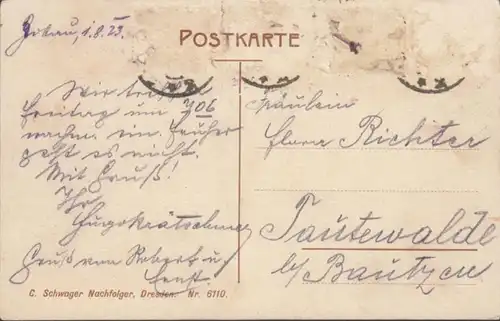 Zobau, 1.8.23.
POSTKARTE
Wir
Freitag um 7 06
ein. Früher
geht es nicht.
Mit Gruß!
Ihr
Hugo Krätschmer
Gruß von Robert u.
Ernst.
Fräulein
Flora Richter
Tautewalde
b/Bautzen
C. Schwager Nachfolger, Dresden. Nr. 6110.